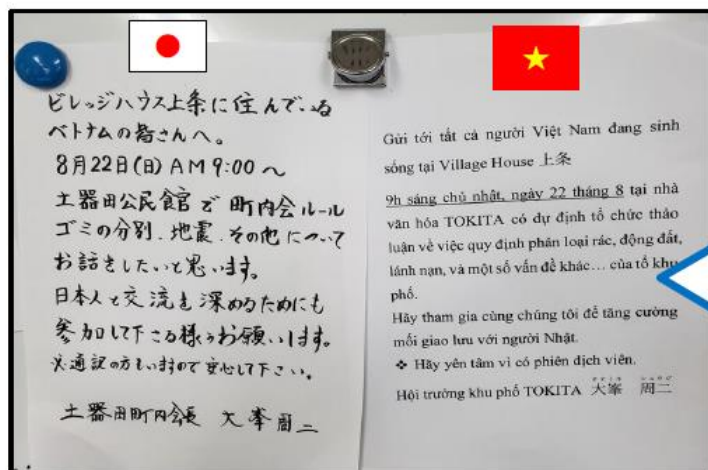 ビレッジハウス上条に住んでいる
ベトナムの皆さんへ。
8月22日(日) AM 9:00 〜
土器田公民館で 町内会ルール
ゴミの分別、地震、その他について
お話をしたいと思います。
日本人と交流を深めるためにも
参加して下さる様お願いします。
※通訳の方もいますので安心して下さい。
土器田町内会長 大峯周二
Gửi tới tất cả người Việt Nam đang sinh
sống tại Village House 上条
9h sáng chủ nhật, ngày 22 tháng 8 tại nhà
văn hóa TOKITA có dự định tổ chức thảo
luận về việc quy định phân loại rác, động đất,
lánh nạn, và một số vấn đề khác… của tổ khu
phố.
Hãy tham gia cùng chúng tôi để tăng cường
mối giao lưu với người Nhật.
❖ Hãy yên tâm vì có phiên dịch viên.
Hội trưởng khu phố TOKITA 大峯 周二